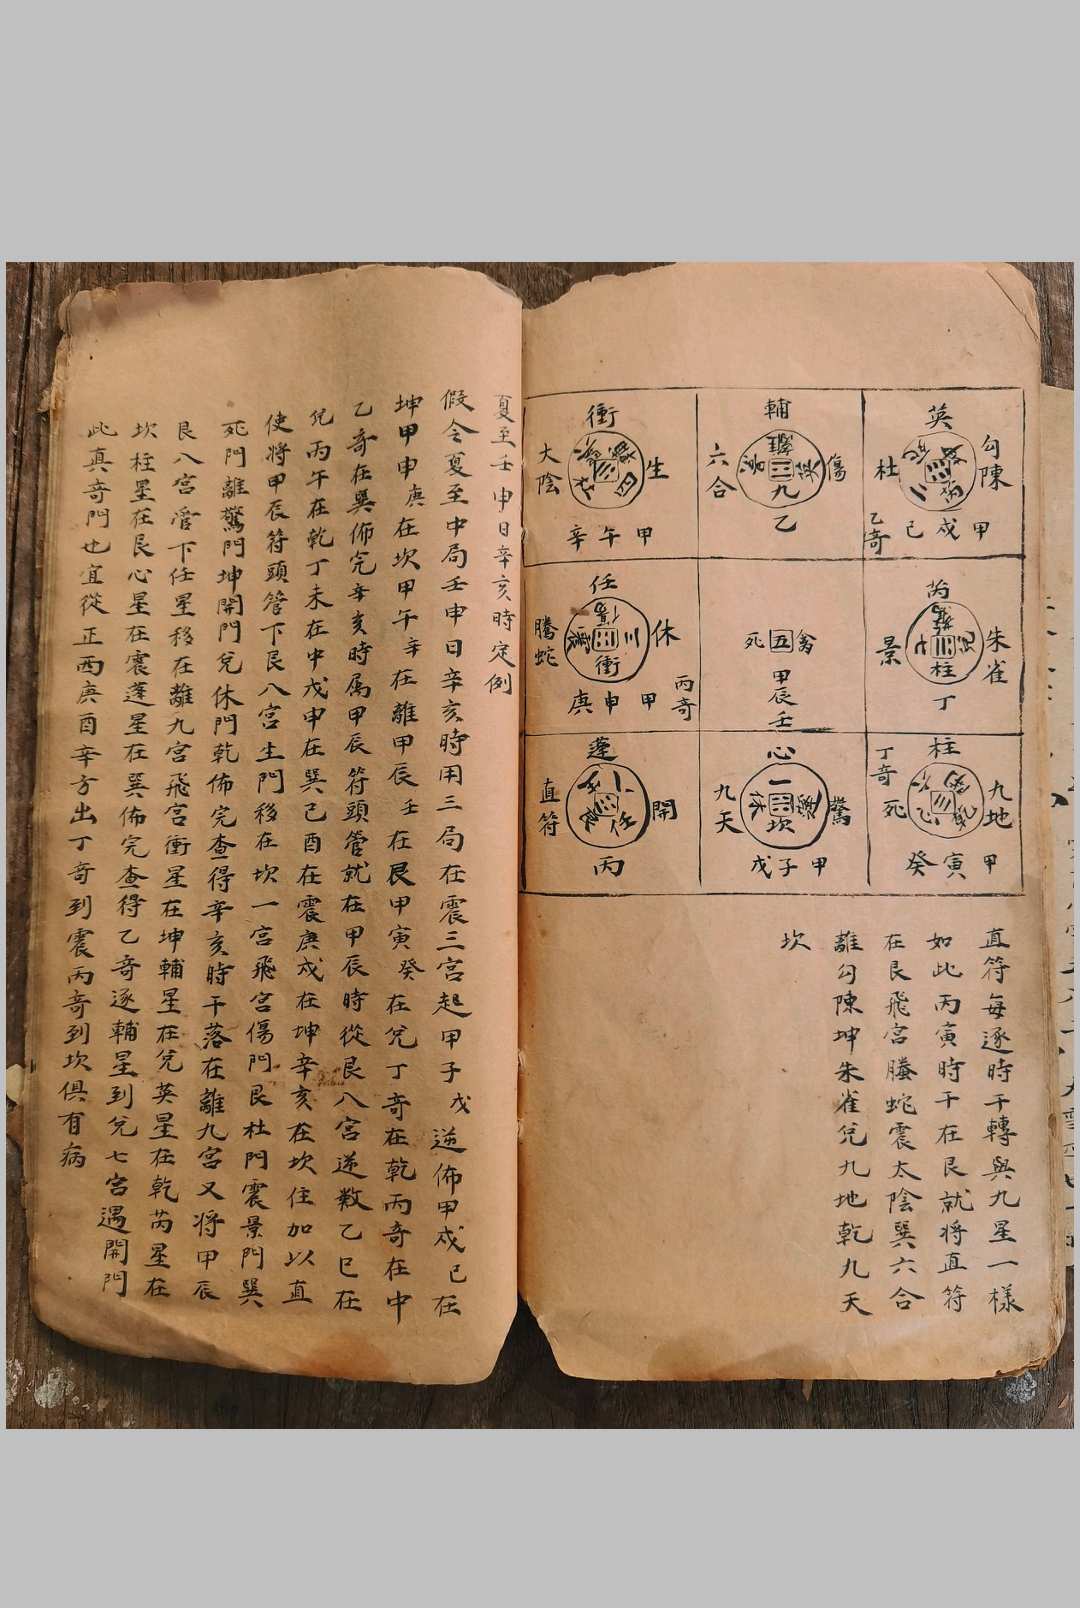 英
勾陳
杜
乙奇
己戌甲
輔
傷
六合
九
乙
衝
生
大陰
四
辛午甲
芮
朱雀
景
柱
丁
禽
五
死
甲辰壬
任
休
騰蛇
三
衝
丙奇
庚申甲
柱
九地
丁奇
死
癸寅甲
心
驚
九天
一
休
坎
戊子甲
蓬
開
直符
任
丙
直符每逐時干轉與九星一樣
如此丙寅時干在艮就將直符
在艮飛宮螣蛇震太陰巽六合
離勾陳坤朱雀兌九地乾九天
坎
夏至壬申日辛亥時定例
假令夏至中局壬申日辛亥時用三局在震三宮起甲子戊逆佈甲戌己在
坤甲申庚在坎甲午辛在離甲辰壬在艮甲寅癸在兌丁奇在乾丙奇在中
乙奇在巽佈完辛亥時屬甲辰符頭管就在甲辰時從艮八宮逆數乙巳在
兌丙午在乾丁未在中戊申在巽己酉在震庚戌在坤辛亥在坎住加以直
使將甲辰符頭管下艮八宮生門移在坎一宮飛宮傷門艮杜門震景門巽
死門離驚門坤開門兌休門乾佈完查得辛亥時干落在離九宮又將甲辰
艮八宮管下任星移在離九宮飛宮衝星在坤輔星在兌英星在乾芮星在
坎柱星在艮心星在震蓬星在巽佈完查得乙奇逐輔星到兌七宮遇開門
此真奇門也宜從正西庚酉辛方出丁奇到震丙奇到坎俱有病